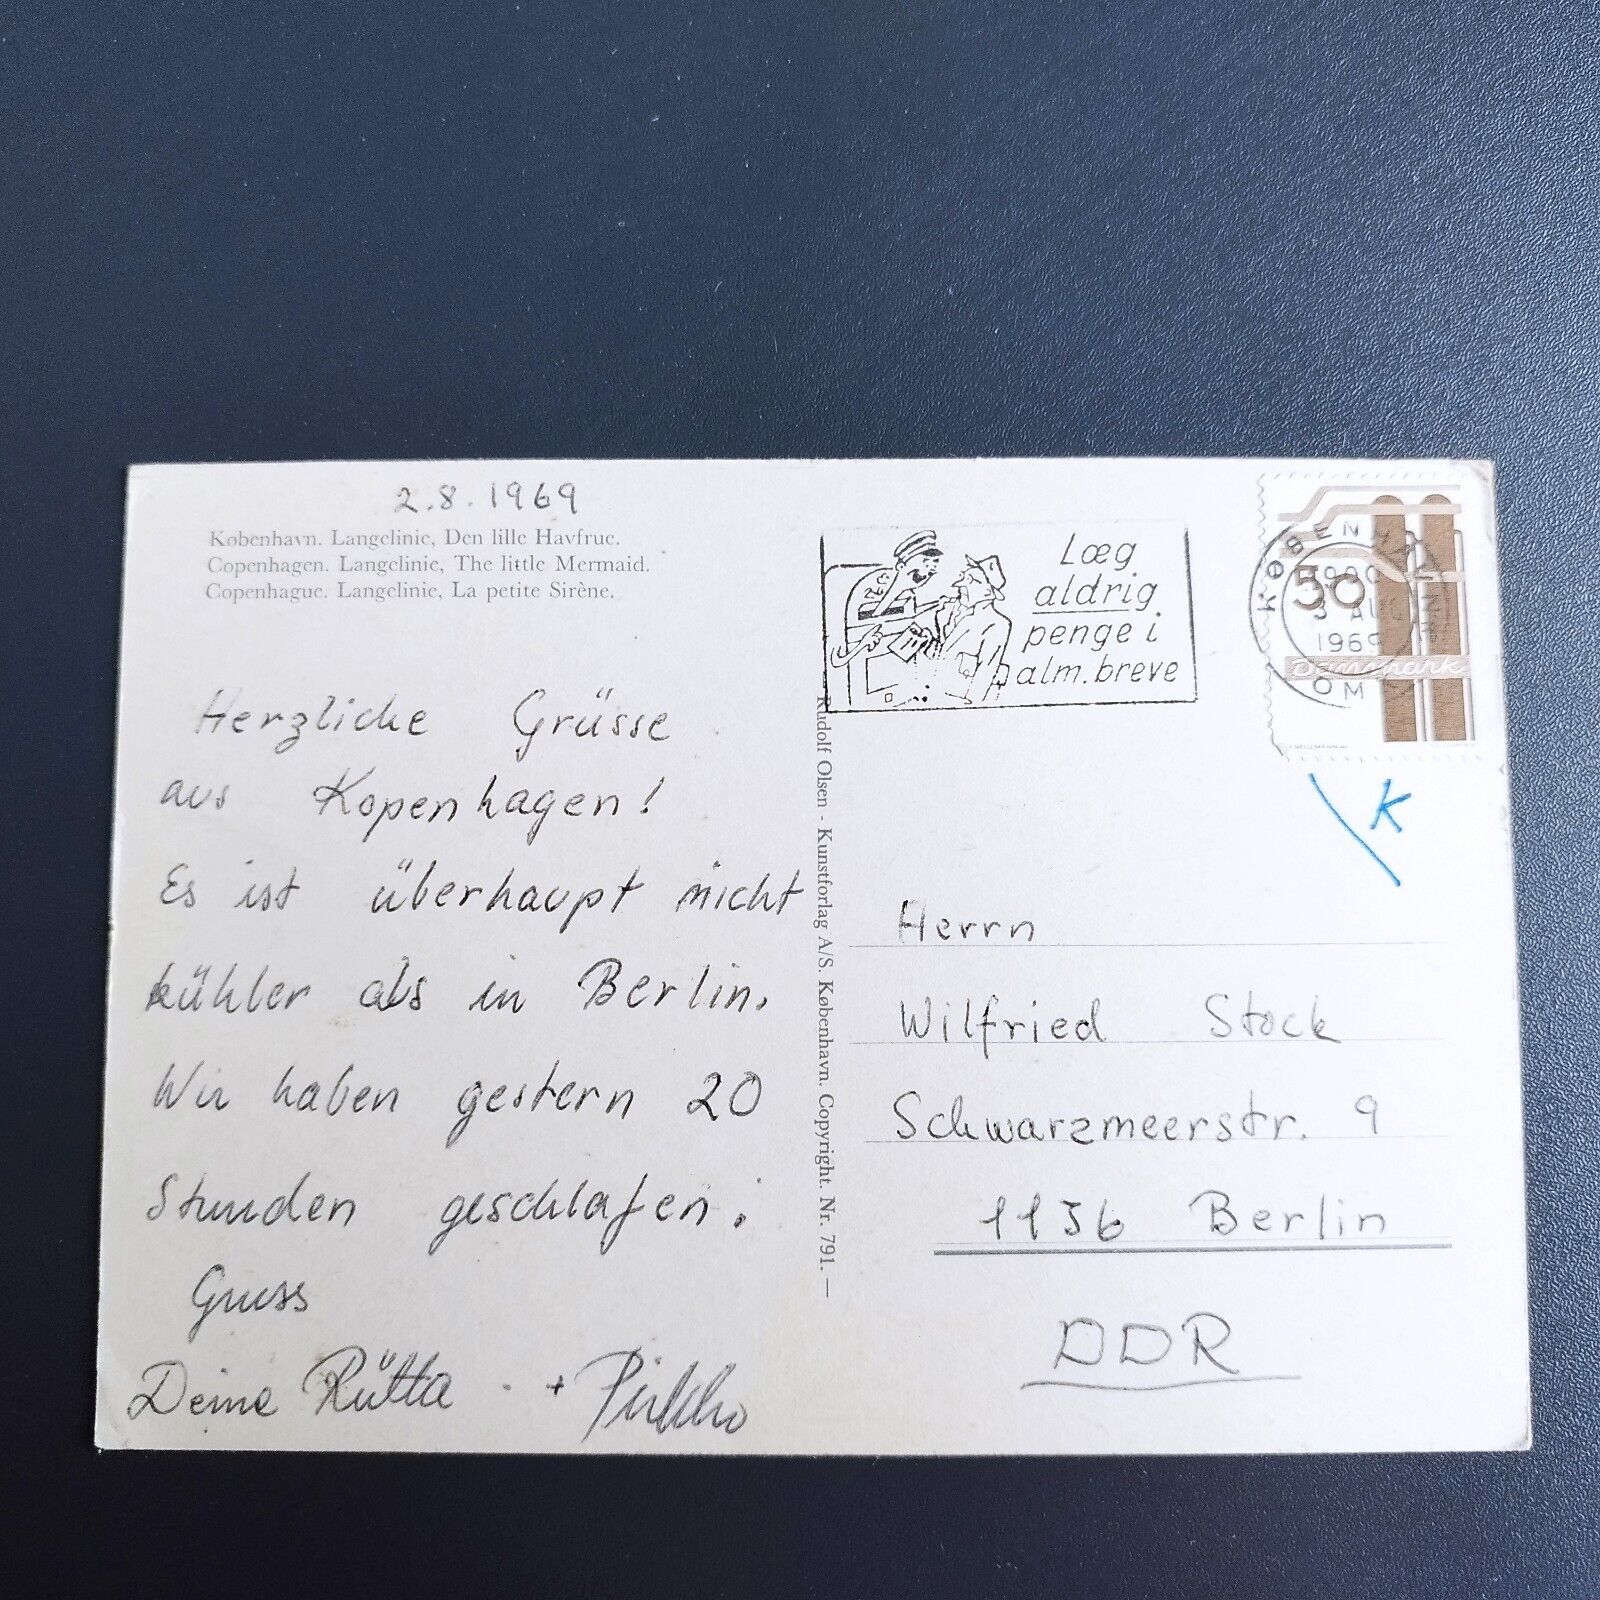 2.8.1969
København. Langelinie, Den lille Havfrue.
Copenhagen. Langelinie, The little Mermaid.
Copenhague. Langelinie, La petite Sirène.
Herzliche Grüsse
aus Kopenhagen!
Es ist überhaupt nicht
kühler als in Berlin.
Wir haben gestern 20
Stunden geschlafen!
Gruss
Deine Rütta + Pirkko
Rudolf Olsen - Kunstforlag A/S. København. Copyright. Nr. 791. —
Læg
aldrig
penge i
alm. breve
KØBENHAVN
3 AUG
1969
OMK
50
Danmark
K
Herrn
Wilfried Stock
Schwarzmeerstr. 9
1136 Berlin
DDR